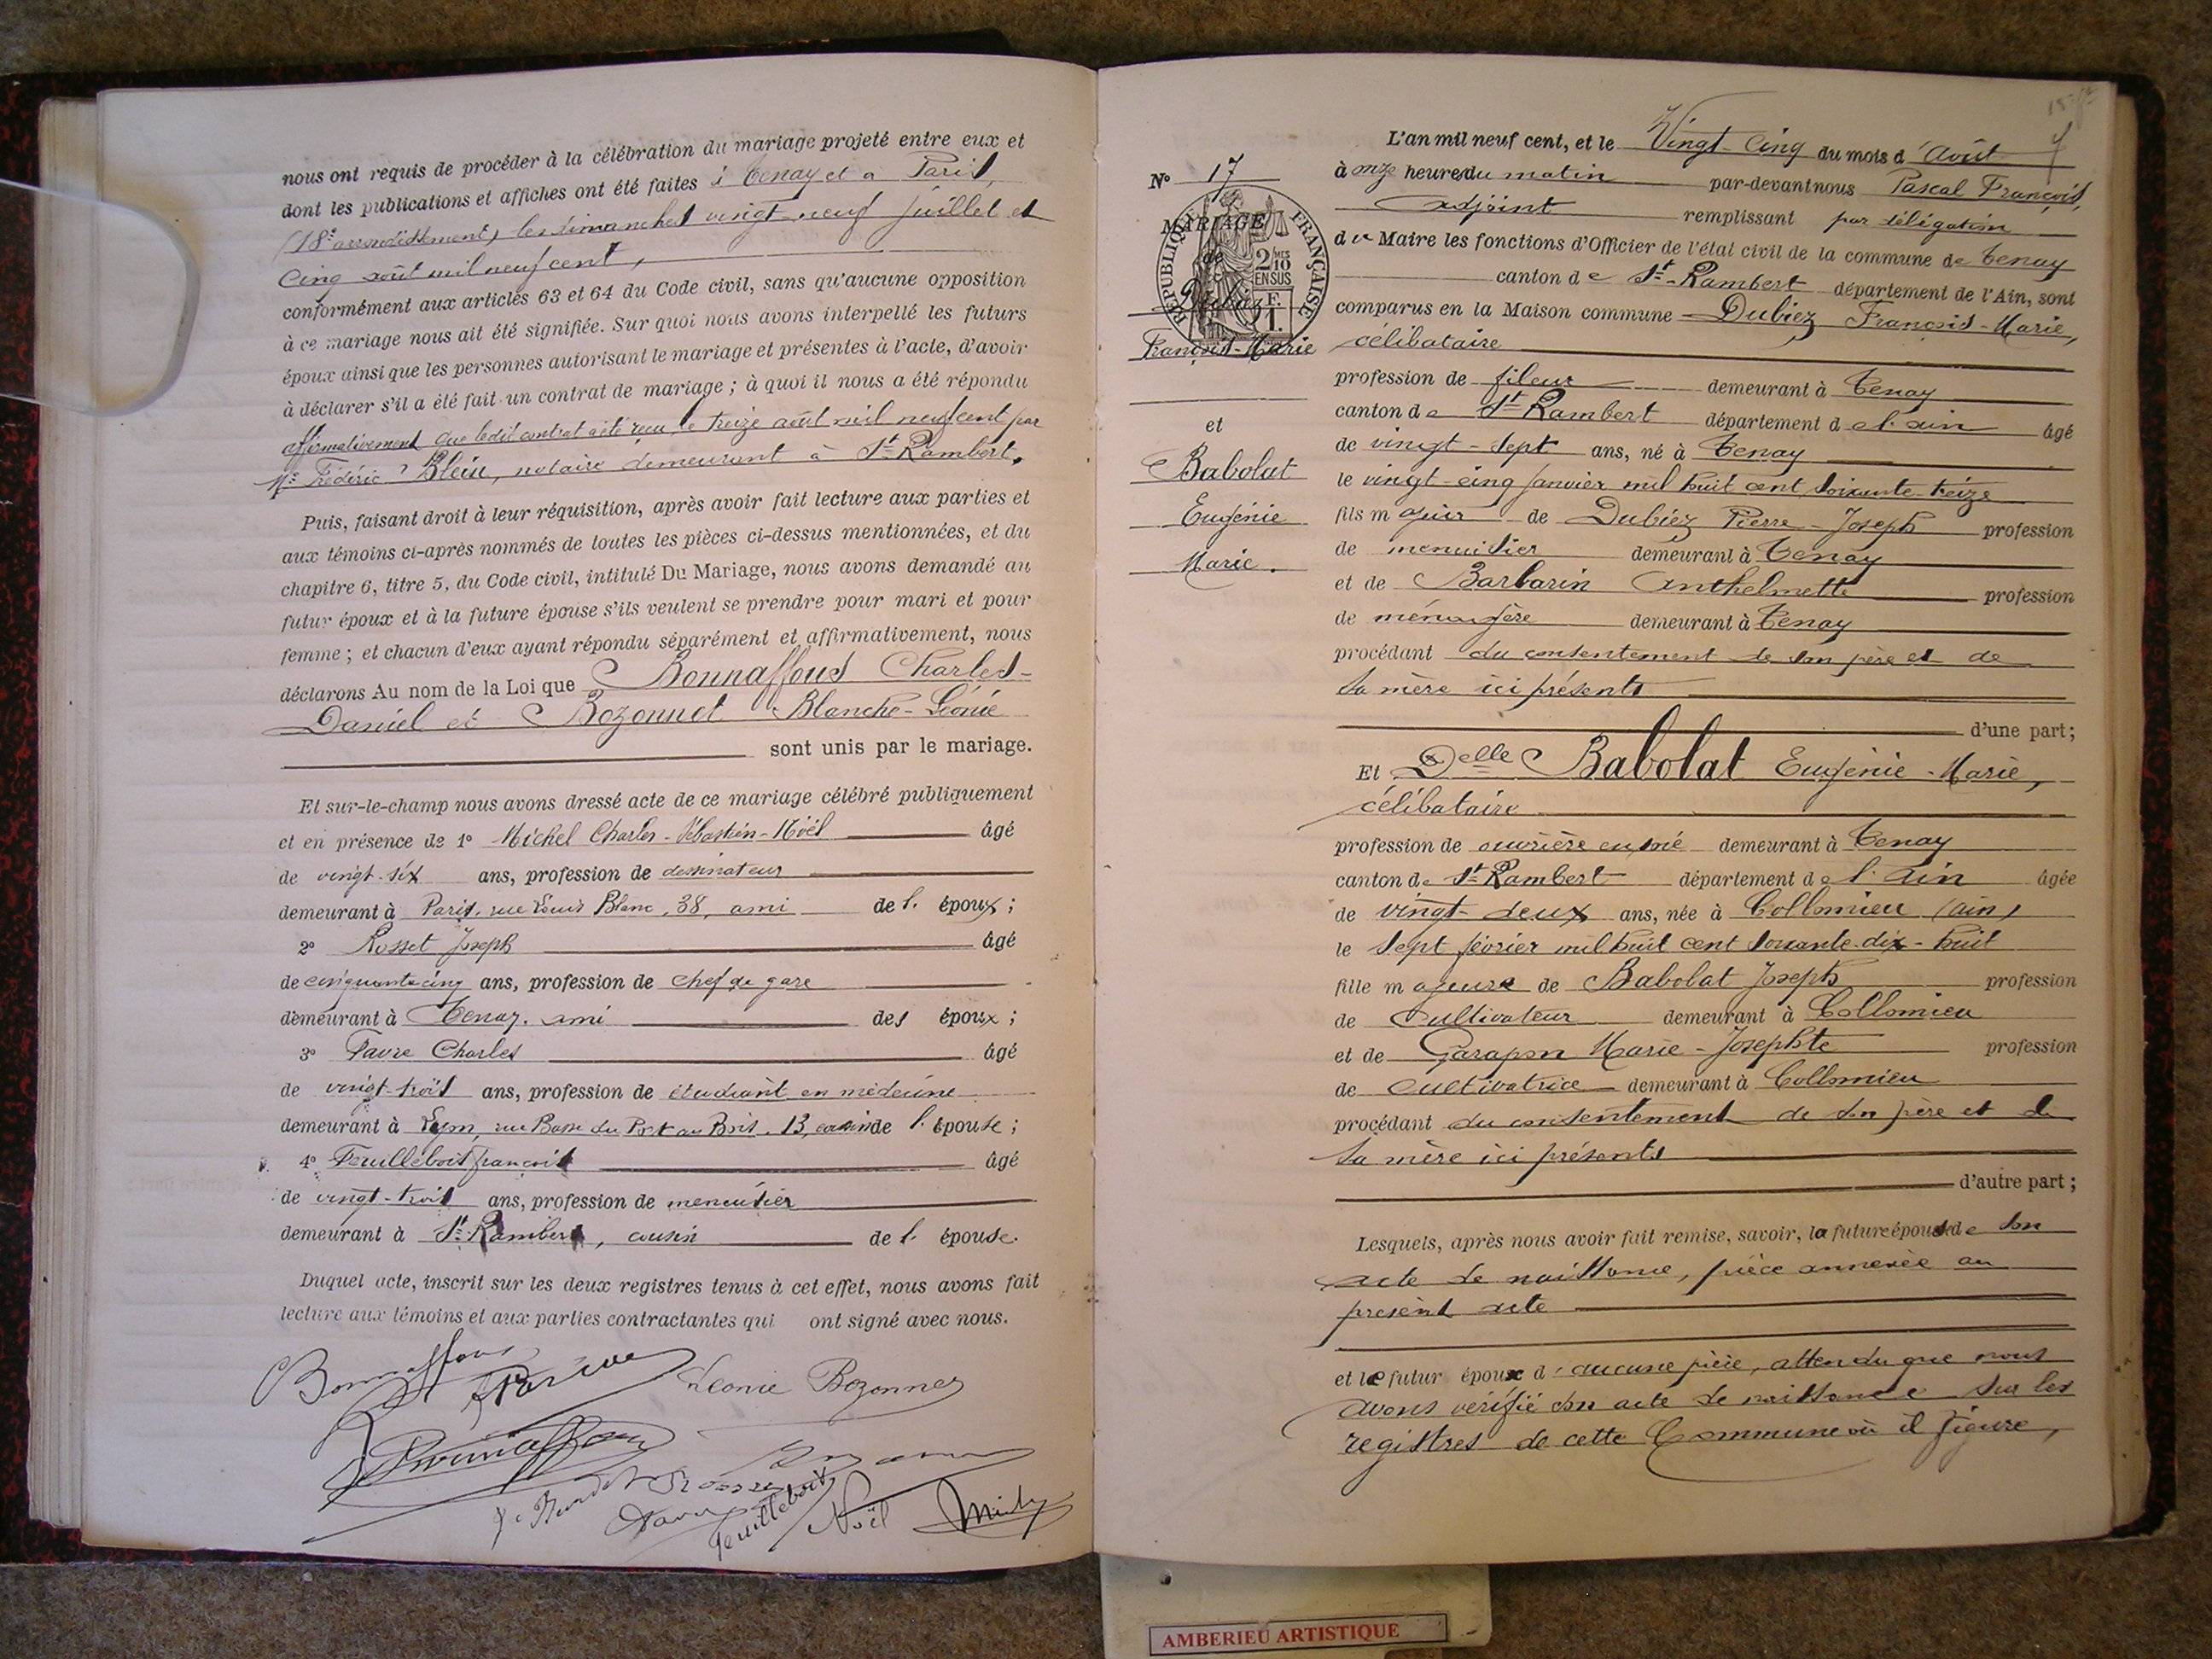 nous ont requis de procéder à la célébration du mariage projeté entre eux et
dont les publications et affiches ont été faites à Tenay et à Paris,
(18e arrondissement) les dimanches vingt-neuf juillet et
cinq août mil neuf cent,
conformément aux articles 63 et 64 du Code civil, sans qu'aucune opposition
à ce mariage nous ait été signifiée. Sur quoi nous avons interpellé les futurs
époux ainsi que les personnes autorisant le mariage et présentes à l'acte, d'avoir
à déclarer s'il a été fait un contrat de mariage ; à quoi il nous a été répondu
affirmativement que ledit contrat a été reçu le treize août mil neuf cent par
Me Frédéric Blein, notaire demeurant à St Rambert.
Puis, faisant droit à leur réquisition, après avoir fait lecture aux parties et
aux témoins ci-après nommés de toutes les pièces ci-dessus mentionnées, et du
chapitre 6, titre 5, du Code civil, intitulé Du Mariage, nous avons demandé au
futur époux et à la future épouse s'ils veulent se prendre pour mari et pour
femme ; et chacun d'eux ayant répondu séparément et affirmativement, nous
déclarons Au nom de la Loi que Bonnaffous Charles-
Daniel et Bozonnet Blanche-Léonie
sont unis par le mariage.
Et sur-le-champ nous avons dressé acte de ce mariage célébré publiquement
et en présence de 1o Michel Charles-Sébastien-Noël âgé
de vingt-six ans, profession de dessinateur
demeurant à Paris, rue Louis Blanc, 38, ami de l' époux ;
2o Rosset Joseph âgé
de cinquante cinq ans, profession de chef de gare
demeurant à Tenay, ami des époux ;
3o Favre Charles âgé
de vingt-trois ans, profession de étudiant en médecine
demeurant à Lyon, rue Basse du Port au Bois, 13, cousin de l' épouse ;
4o Feuillebois françois âgé
de vingt-trois ans, profession de menuisier
demeurant à St Rambert, cousin de l' épouse.
Duquel acte, inscrit sur les deux registres tenus à cet effet, nous avons fait
lecture aux témoins et aux parties contractantes qui ont signé avec nous.
Bonnaffous
Léonie Bozonnet
Feuillebois Noël
No 17
MARIAGE
de
RÉPUBLIQUE FRANÇAISE
2 MES 10 EN SUS
F. 1.
Dubiez
François-Marie
et
Babolat
Eugénie
Marie.
L'an mil neuf cent, et le Vingt-Cinq du mois d'Août
à onze heures du matin par-devant nous Pascal François,
adjoint remplissant par délégation
du Maire les fonctions d'Officier de l'état civil de la commune de Tenay
canton de St-Rambert département de l'Ain, sont
comparus en la Maison commune Dubiez François-Marie,
célibataire
profession de fileur demeurant à Tenay
canton de St Rambert département de l'ain âgé
de vingt-sept ans, né à Tenay
le vingt-cinq janvier mil huit cent soixante-treize
fils majeur de Dubiez Pierre-Joseph profession
de menuisier demeurant à Tenay
et de Barbarin Anthelmette profession
de ménagère demeurant à Tenay
procédant du consentement de son père et de
sa mère ici présents
d'une part ;
Et Delle Babolat Eugénie-Marie,
célibataire
profession de ouvrière en soie demeurant à Tenay
canton de St Rambert département de l'Ain âgée
de vingt-deux ans, née à Collomieu (ain)
le sept février mil huit cent soixante-dix-huit
fille majeure de Babolat Joseph profession
de Cultivateur demeurant à Collomieu
et de Garapon Marie-Josephte profession
de cultivatrice demeurant à Collomieu
procédant du consentement de son père et de
sa mère ici présents
d'autre part ;
Lesquels, après nous avoir fait remise, savoir, la future épouse de son
acte de naissance, pièce annexée au
présent acte
et le futur époux d'aucune pièce, attendu que nous
avons vérifié son acte de naissance sur les
registres de cette Commune où il figure,
AMBERIEU ARTISTIQUE